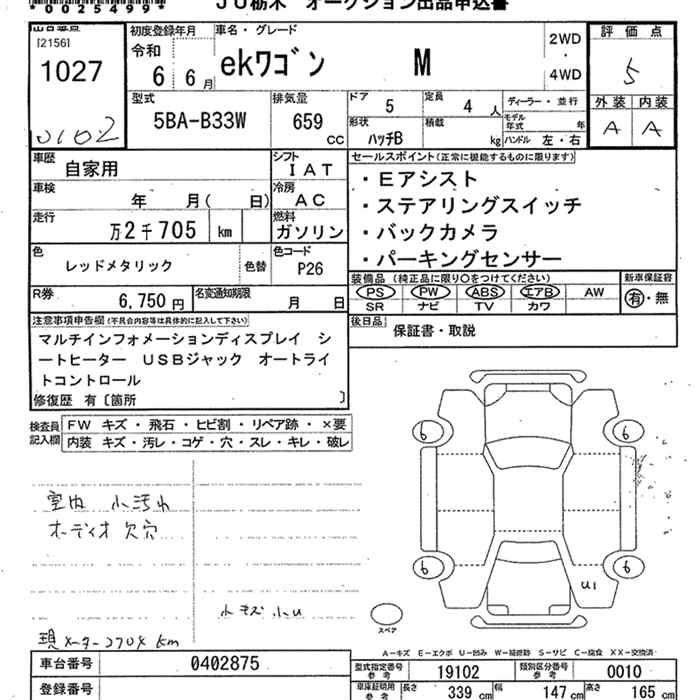 *0025499*
JU栃木 オークション出品申込書
[2156]
1027
0102
初度登録年月
令和
6 6月
車名・グレード
ekワゴン M
2WD
・
4WD
評価点
5
外装 内装
A A
型式
5BA-B33W
排気量
659 CC
ドア 5
定員 4 人
ディーラー・並行
形状
ハッチB
積載 kg
モデル年式 年
ハンドル 左・右
車歴 自家用
シフト IAT
車検 年 月( 日)
冷房 AC
走行 万2千705 km
燃料 ガソリン
色 レッドメタリック 色替
色コード P26
R券 6,750円
名変通知期限 月 日
セールスポイント(正常に機能するものに限ります)
・Eアシスト
・ステアリングスイッチ
・バックカメラ
・パーキングセンサー
装備品 (純正品に限り○をつけてください)
新車保証書
PS PW ABS エアB AW
SR ナビ TV カワ
有・無
後日品 保証書・取説
注意事項申告欄(不具合内容等は具体的に記入して下さい)
マルチインフォメーションディスプレイ シ
ートヒーター USBジャック オートライ
トコントロール
修復歴 有〔箇所 〕
検査員記入欄
FW キズ・飛石・ヒビ割・リペア跡・×要
内装 キズ・汚レ・コゲ・穴・スレ・キレ・破レ
室内 小汚れ
オーディオ欠穴
小キズ小U
現メーター2704km
6 6
6 6
U1
スペア
A－キズ E－エクボ U－凹み W－補修跡 S－サビ C－腐食 XX－交換済
車台番号 0402875
登録番号
型式指定番号参考 19102
類別区分番号参考 0010
車庫証明用参考 長さ 339 cm 幅 147 cm 高さ 165 cm